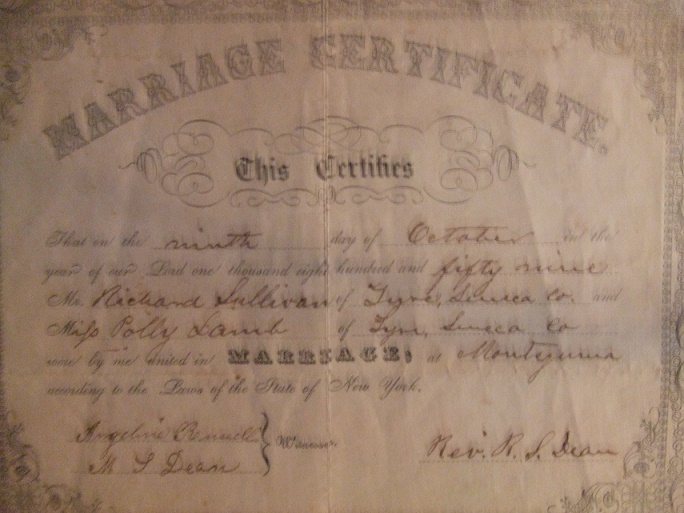 MARRIAGE CERTIFICATE.
This Certifies
That on the ninth day of October in the
year of our Lord one thousand eight hundred and fifty nine
Mr. Richard Sullivan of Tyre, Seneca Co. and
Miss Polly Lamb of Tyre, Seneca Co
were by me united in MARRIAGE; at Montezuma
according to the Laws of the State of New York.
Angeline
M S Dean
Witnesses.
Rev. R. S. Dean